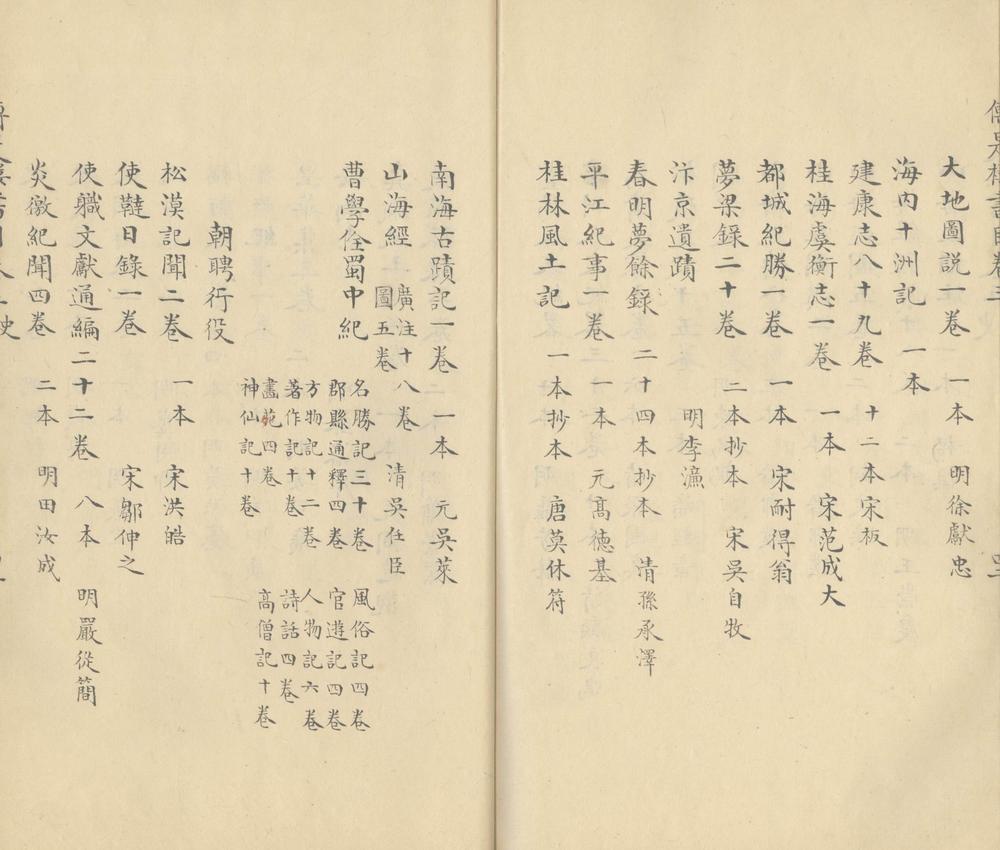 大地圖説一卷 一本 明徐獻忠
海内十洲記 一本
建康志八十九卷 十二本宋板
桂海虞衡志一卷 一本 宋范成大
都城紀勝一卷 一本 宋耐得翁
夢梁録二十卷 二本抄本 宋吴自牧
汴京遺蹟 明李濂
春明夢餘録 二十四本抄本 清孫承澤
平江紀事一卷 一本 元高德基
桂林風土記 一本抄本 唐莫休符
南海古蹟記一卷 一本 元吴萊
山海經 廣注十八卷 圖五卷 清吴任臣
曹學佺蜀中紀 名勝記三十卷 風俗記四卷
郡縣通釋四卷 官遊記四卷
方物記十二卷 人物記六卷
著作記十卷 詩話四卷
畫苑四卷 高僧記十卷
神仙記十卷
朝聘行役
松漠記聞二卷 一本 宋洪皓
使韃日錄一卷 宋鄒伸之
使職文獻通編二十二卷 八本 明嚴從簡
炎徼紀聞四卷 二本 明田汝成